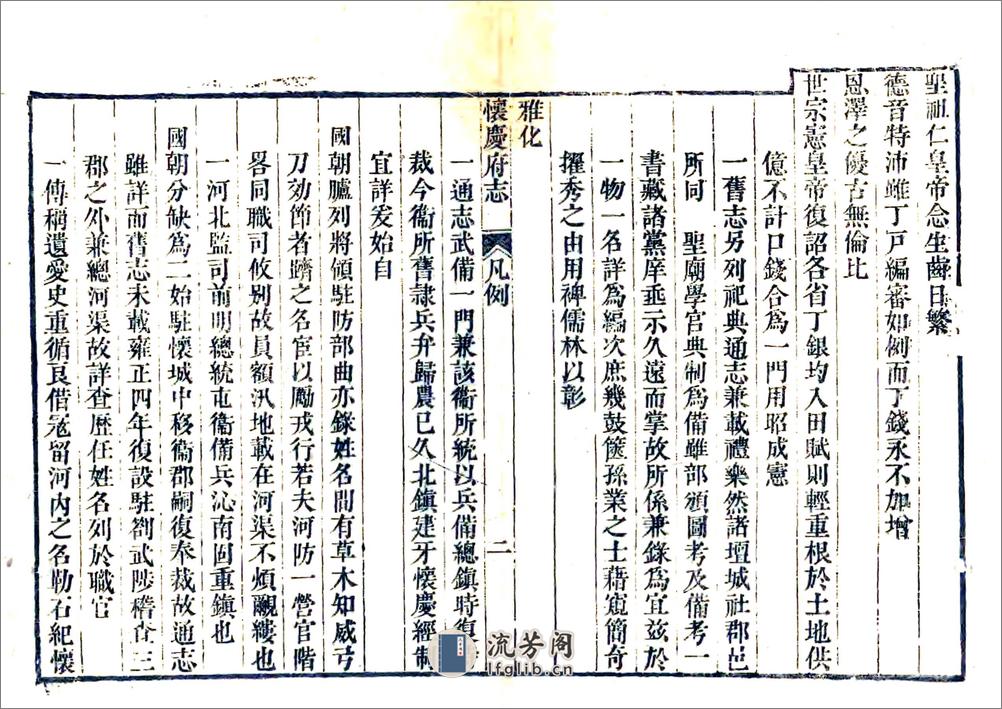 聖祖仁皇帝念生齒日繁
德音特沛雖丁戸編審如例而丁錢永不加增
恩澤之優古無倫比
世宗憲皇帝復詔各省丁銀均入田賦則輕重根於土地供
億不計口錢合為一門用昭成憲
一舊志另列祀典通志兼載禮樂然諸壇城社郡邑
所同 聖廟學官典制為備雖部頒圖考及備考一
書藏諸黨庠垂示久遠而掌故所係兼錄為宜兹於
一物一名詳為編次庶幾鼓篋孫業之士藉窺簡奇
擢秀之由用裨儒林以彰
雅化
懷慶府志 凡例 二
一通志武備一門兼該衞所統以兵備總鎮時
裁今衞所舊隸兵弁歸農已久北鎮建牙懷慶經制
宜詳爰始自
國朝臚列將領駐防部曲亦錄姓名間有草木知威弓
刀効節者躋之名宦以勵戎行若夫河防一營官階
畧同職司攸别故員額汛地載在河渠不煩覼縷也
一河北監司前明總統屯衞備兵沁南固重鎮也
國朝分缺為二始駐懷城中移衞郡嗣復奉裁故通志
雖詳而舊志未載雍正四年復設駐劄武陟稽查三
郡之外兼總河渠故詳查歷任姓名列於職官
一傳稱遺愛史重循良借寇留河内之名勒石紀懷
流芳阁
lfglib.cn